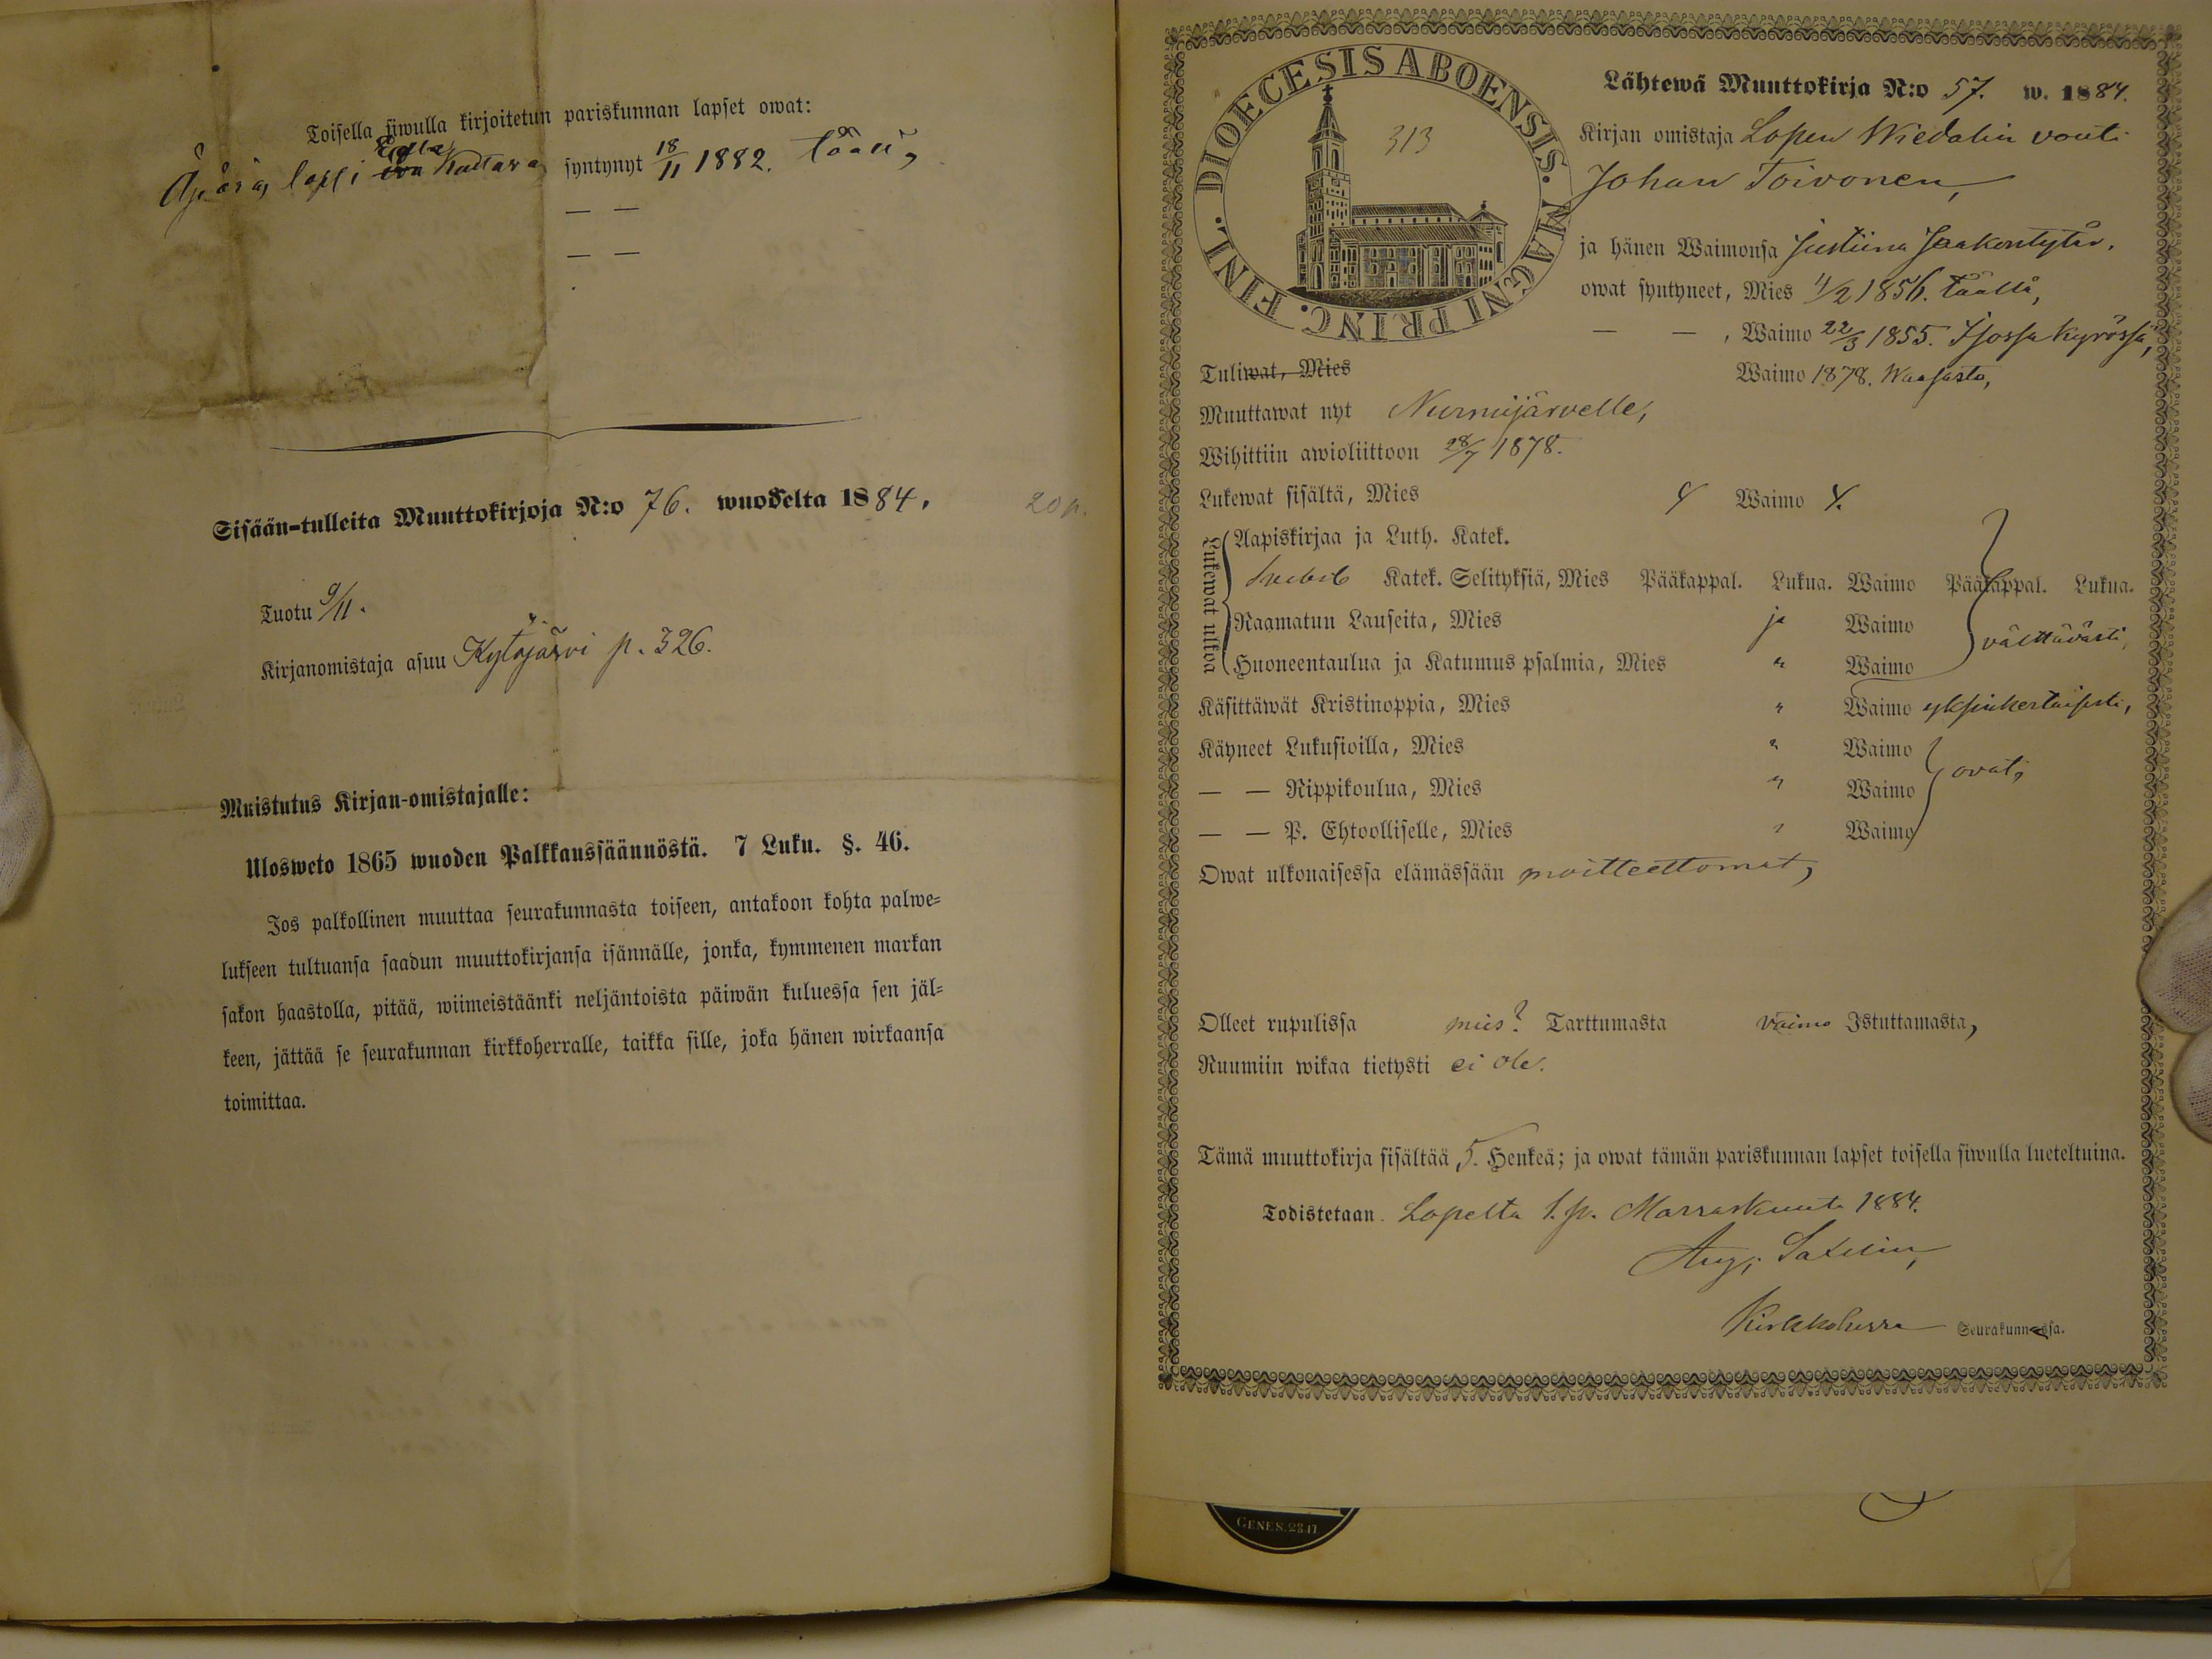 Toisella siwulla kirjoitetun pariskunnan lapset owat:
Äpärä lapsi Edla Kustava syntynyt 18/11 1882. täällä,
— —
— —
Sisään-tulleita Muuttokirjoja N:o 76. wuodelta 1884.
20 p.
Tuotu 9/11.
Kirjanomistaja asuu Kytäjärvi p. 326.
Muistutus Kirjan-omistajalle:
Ulosweto 1865 wuoden Palkkaussäännöstä. 7 Luku. §. 46.
Jos palkollinen muuttaa seurakunnasta toiseen, antakoon kohta palwe=
lukseen tultuansa saadun muuttokirjansa isännälle, jonka, kymmenen markan
sakon haastolla, pitää, wiimeistäänki neljäntoista päiwän kuluessa sen jäl=
keen, jättää se seurakunnan kirkkoherralle, taikka sille, joka hänen wirkaansa
toimittaa.
DIOECESIS ABOENSIS. MAGNI PRINC. FINL.
313
Lähtewä Muuttokirja N:o 57. w. 1884.
Kirjan omistaja Lopen vouti
Johan Toivonen,
ja hänen Waimonsa Justiina Jaakontytär.
owat syntyneet, Mies 4/2 1856. täällä,
— — , Waimo 22/3 1855. Isossa Kyrössä,
Tuliwat, Mies Waimo 1878. Waasasta,
Muuttawat nyt Nurmijärvelle,
Wihittiin awioliittoon 28/7 1878.
Lukewat sisältä, Mies Waimo
Lukewat ulkoa
Aapiskirjaa ja Luth. Katek.
Svebil. Katek. Selityksiä, Mies Pääkappal. Lukua. Waimo Pääkappal. Lukua.
Raamatun Lauseita, Mies ja Waimo
välttävästi,
Huoneentaulua ja Katumus psalmia, Mies " Waimo
Käsittäwät Kristinoppia, Mies " Waimo yksinkertaisesti,
Käyneet Lukusioilla, Mies " Waimo
ovat,
— — Rippikoulua, Mies " Waimo
— — P. Ehtoolliselle, Mies " Waimo
Owat ulkonaisessa elämässään moitteettomat,
Olleet rupulissa mies? Tarttumasta vaimo Istuttamasta,
Ruumiin wikaa tietysti ei ole.
Tämä muuttokirja sisältää 5. Henkeä; ja owat tämän pariskunnan lapset toisella siwulla lueteltuina.
Todistetaan. Lopelta 1. p. Marraskuuta 1884.
Aug.
Kirkkoherra Seurakunnassa.
GENES. 28.17